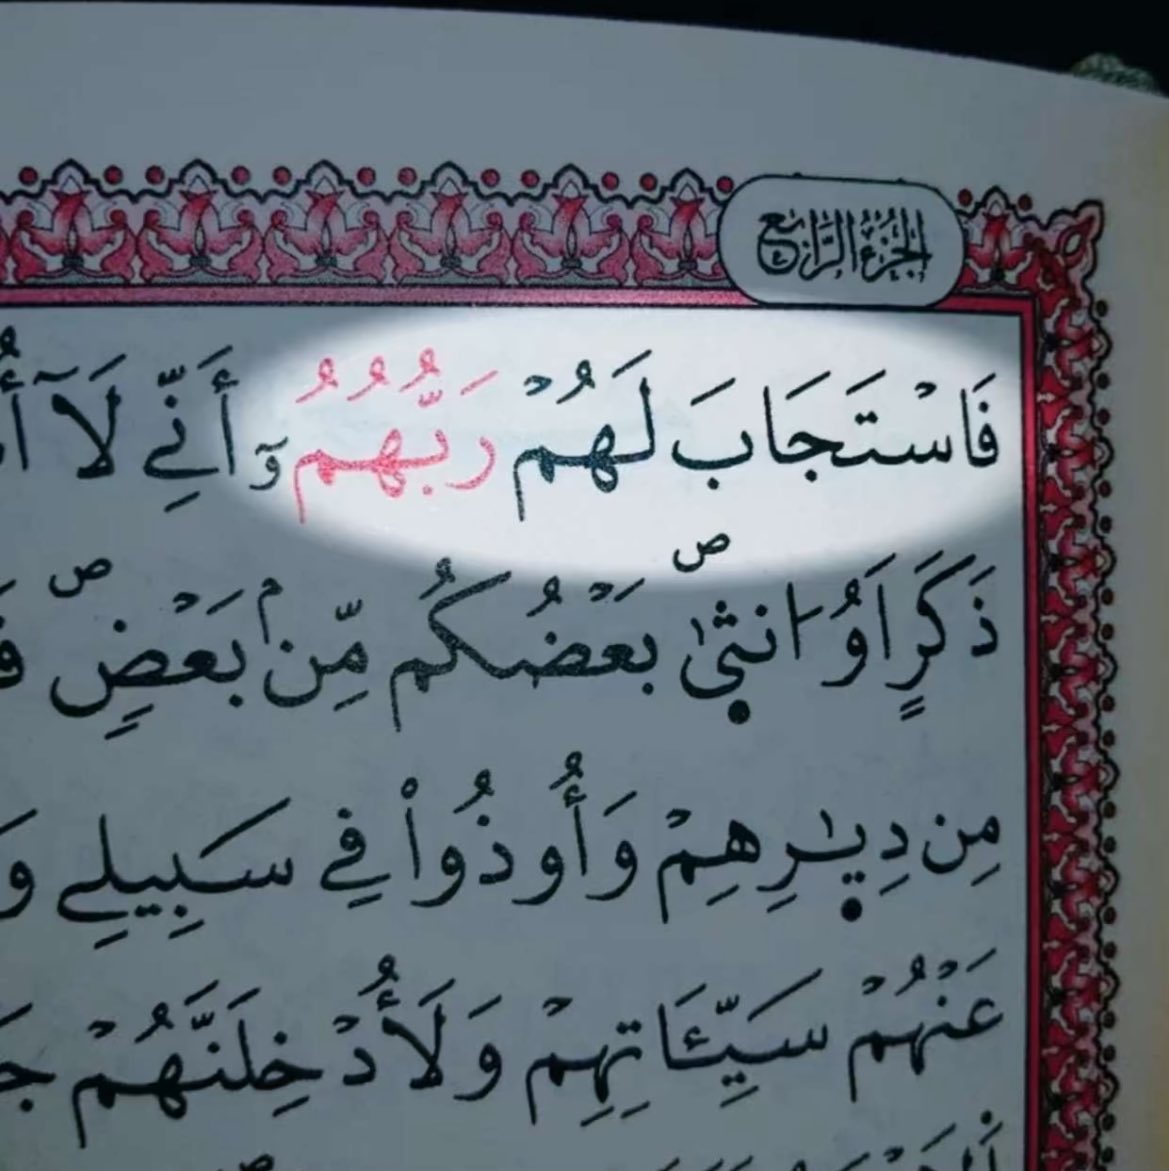 الجُزْءُ الرَّابِع
٤
فَاسْتَجَابَ لَهُمْ رَبُّهُمُۥٓ أَنِّے لَآ
ذَكَرٍ اَوُ ا۟نث۪ىٰ ص بَعْضُكُم مِّنۢ بَعْضٖ ص
مِن دِيٰ۪رِهِمْ وَأُوذُواْ فِے سَبِيلِے وَ
عَنْهُمْ سَيِّـَٔاتِهِمْ وَلَأُدْخِلَنَّهُمْ